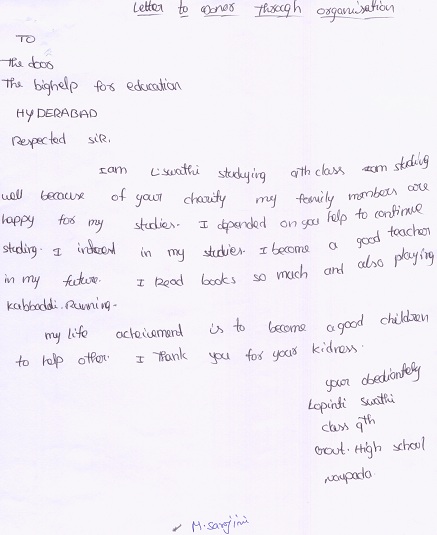 Letter to donor Through organisation
TO
The door
The bighelp for education
HYDERABAD
Respected sir.
I am L.swathi studying 9th class I am studing
well because of your charity my family members are
happy for my studies. I depended on you help to continue
studing. I intrest in my studies. I become a good teacher
in my future. I Read books so much and also playing
Kabbaddi. Running.
my life acheivement is to become a good children
to help other. I Thank you for your kidness.
your obediantely
Lopinti swathi
class 9th
Govt. High school
naupada
M. sarojini